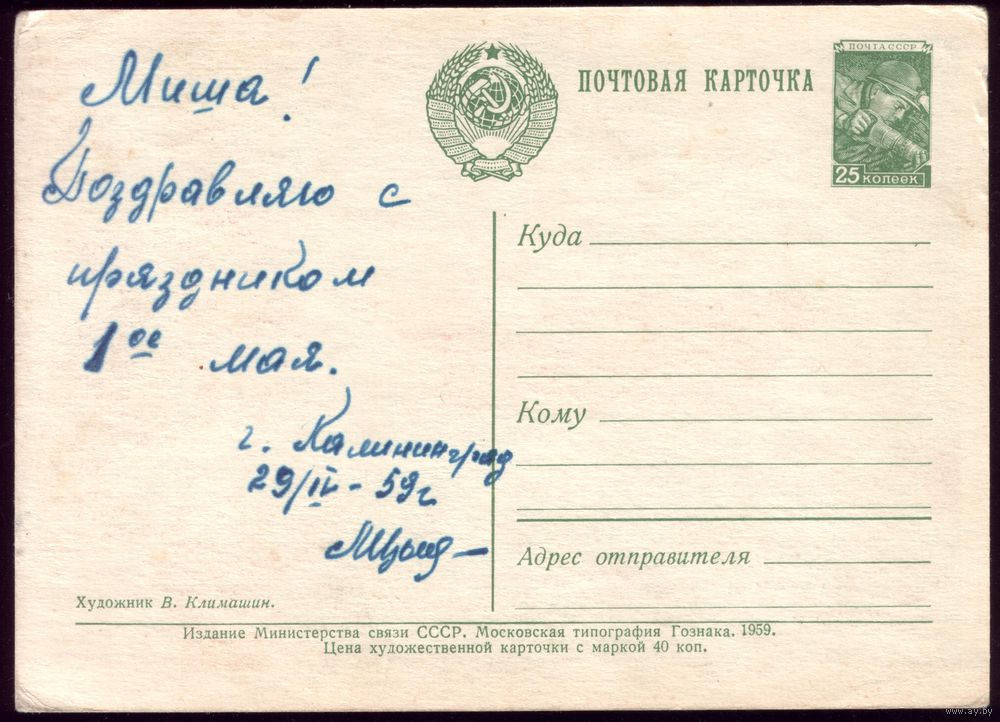 Миша!
Поздравляю с
праздником
1ое мая.
г. Калининград
29/IV - 59г
ПОЧТОВАЯ КАРТОЧКА
ПОЧТА СССР
25 копеек
Куда
Кому
Адрес отправителя
Художник В. Климашин.
Издание Министерства связи СССР. Московская типография Гознака. 1959.
Цена художественной карточки с маркой 40 коп.
www.ay.by